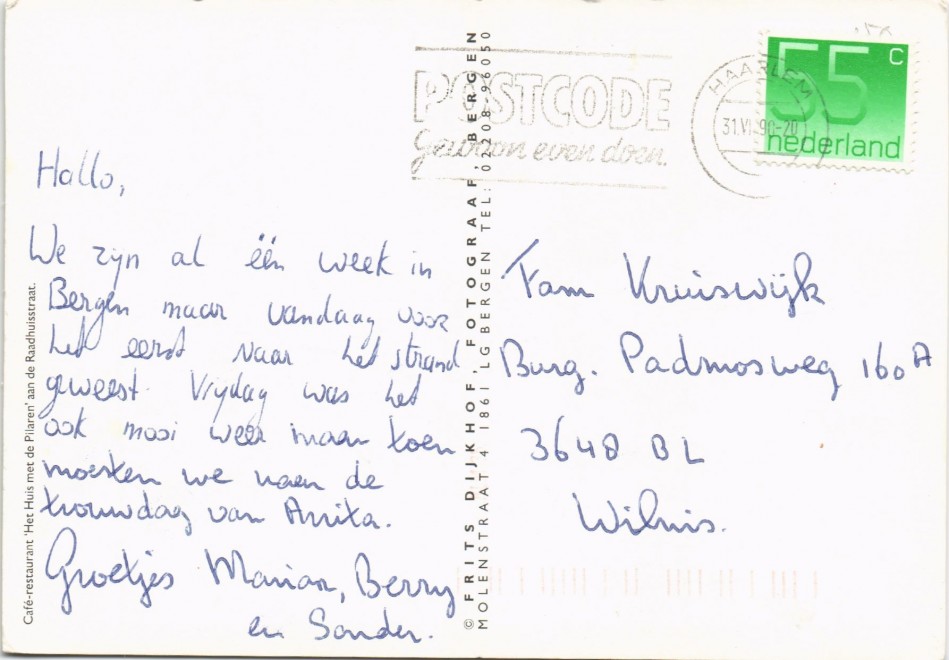 POSTCODE
Gewoon even doen.
HAARLEM
55 c
nederland
Hallo,
We zijn al één week in
Bergen maar vandaag voor
het eerst naar het strand
geweest. Vrijdag was het
ook mooi weer maar toen
moesten we naar de
trouwdag van Anita.
Groetjes Marian, Berry
en Sander.
Fam Kruiswijk
Burg. Padmosweg 160A
3648 BL
Wilnis.
Café-restaurant 'Het Huis met de Pilaren' aan de Raadhuisstraat.
© FRITS DIJKHOF, FOTOGRAAF, BERGEN
MOLENSTRAAT 4 1861 LG BERGEN TEL: 02208-96050